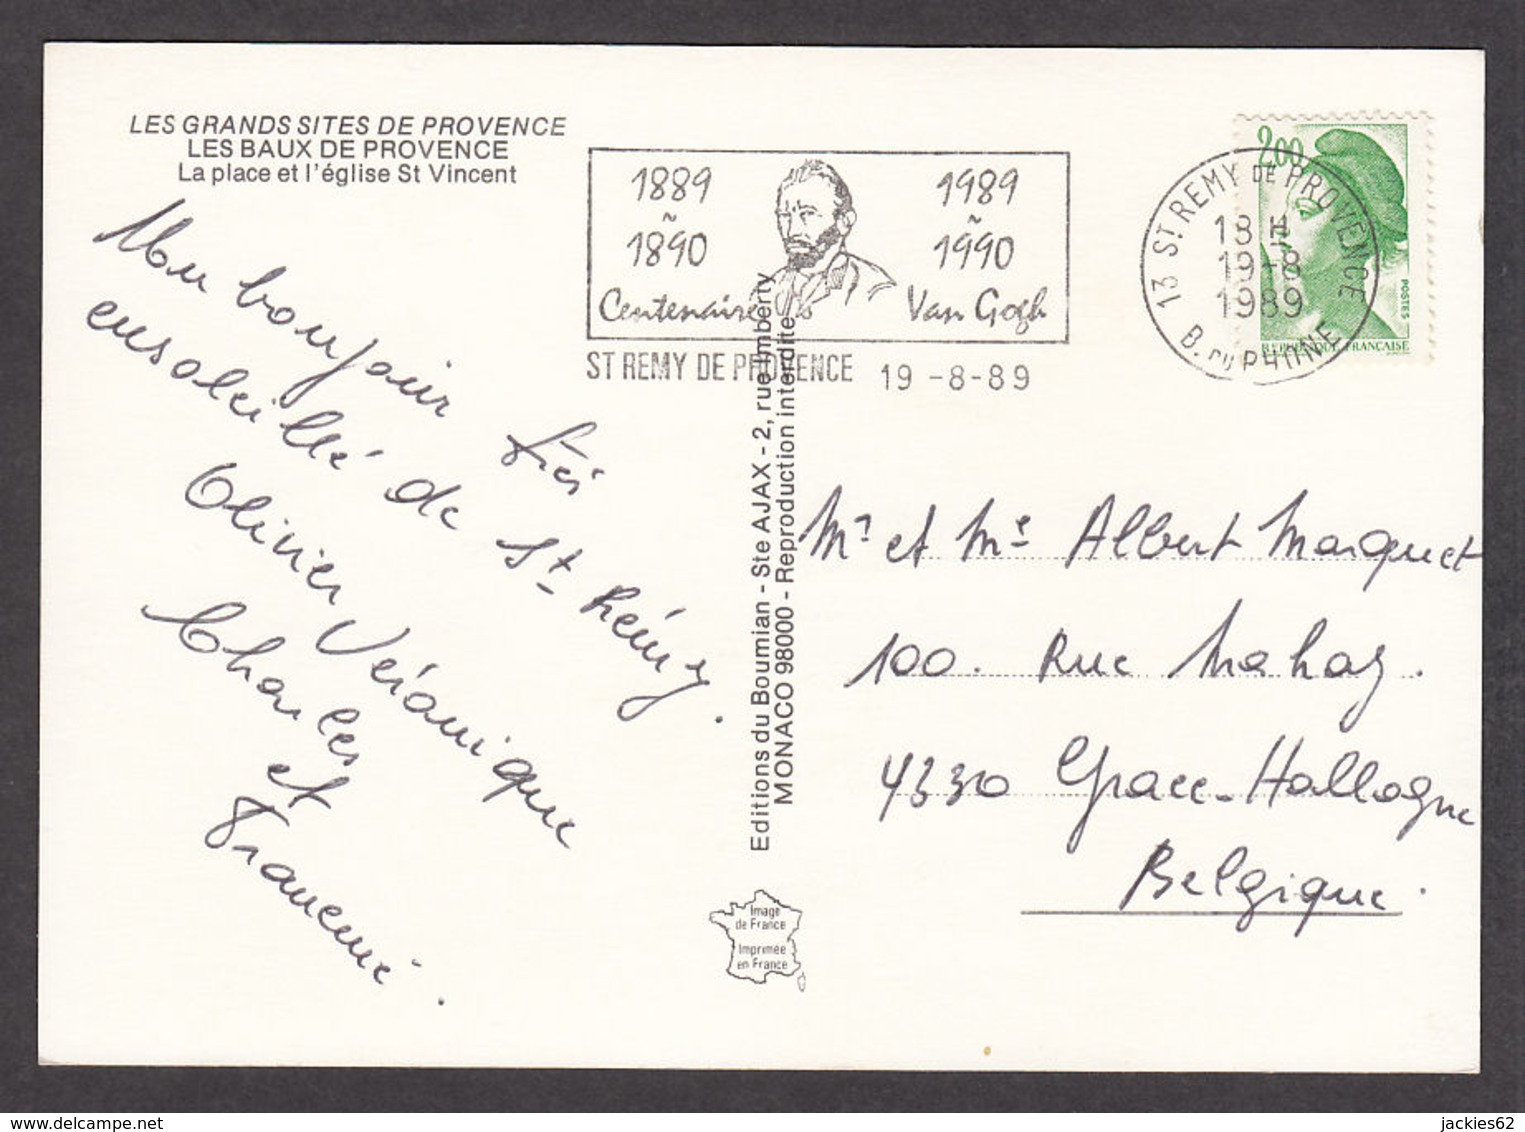 LES GRANDS SITES DE PROVENCE
LES BAUX DE PROVENCE
La place et l'église St Vincent
1889 ~ 1890
1989 ~ 1990
Centenaire Van Gogh
ST REMY DE PROVENCE 19 -8-89
2.00
13 ST REMY DE PROVENCE
18 H
19-8
1989
B. DU RHONE
POSTES
REPUBLIQUE FRANÇAISE
Un bonjour très
ensoleillé de St Rémy.
Olivier Véronique
Charles
et
Francine.
Editions du Boumian - Ste AJAX - 2, rue Imberty
MONACO 98000 - Reproduction interdite
Mr et Me Albert Marquet
100. Rue Mahay.
4330 Grace-Hollogne
Belgique.
Image
de France
Imprimée
en France
jackies62